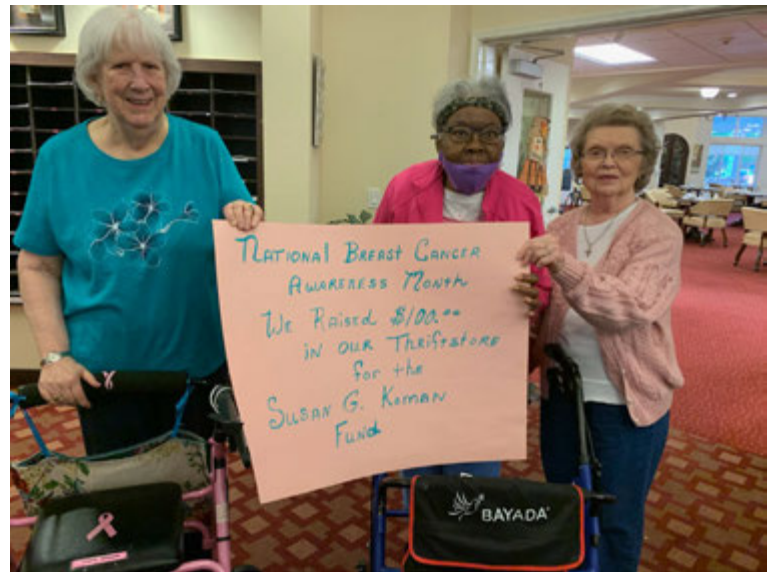 National Breast Cancer
Awareness Month
We Raised $100.00
in our Thriftstore
for the
Susan G. Koman
Fund
BAYADA